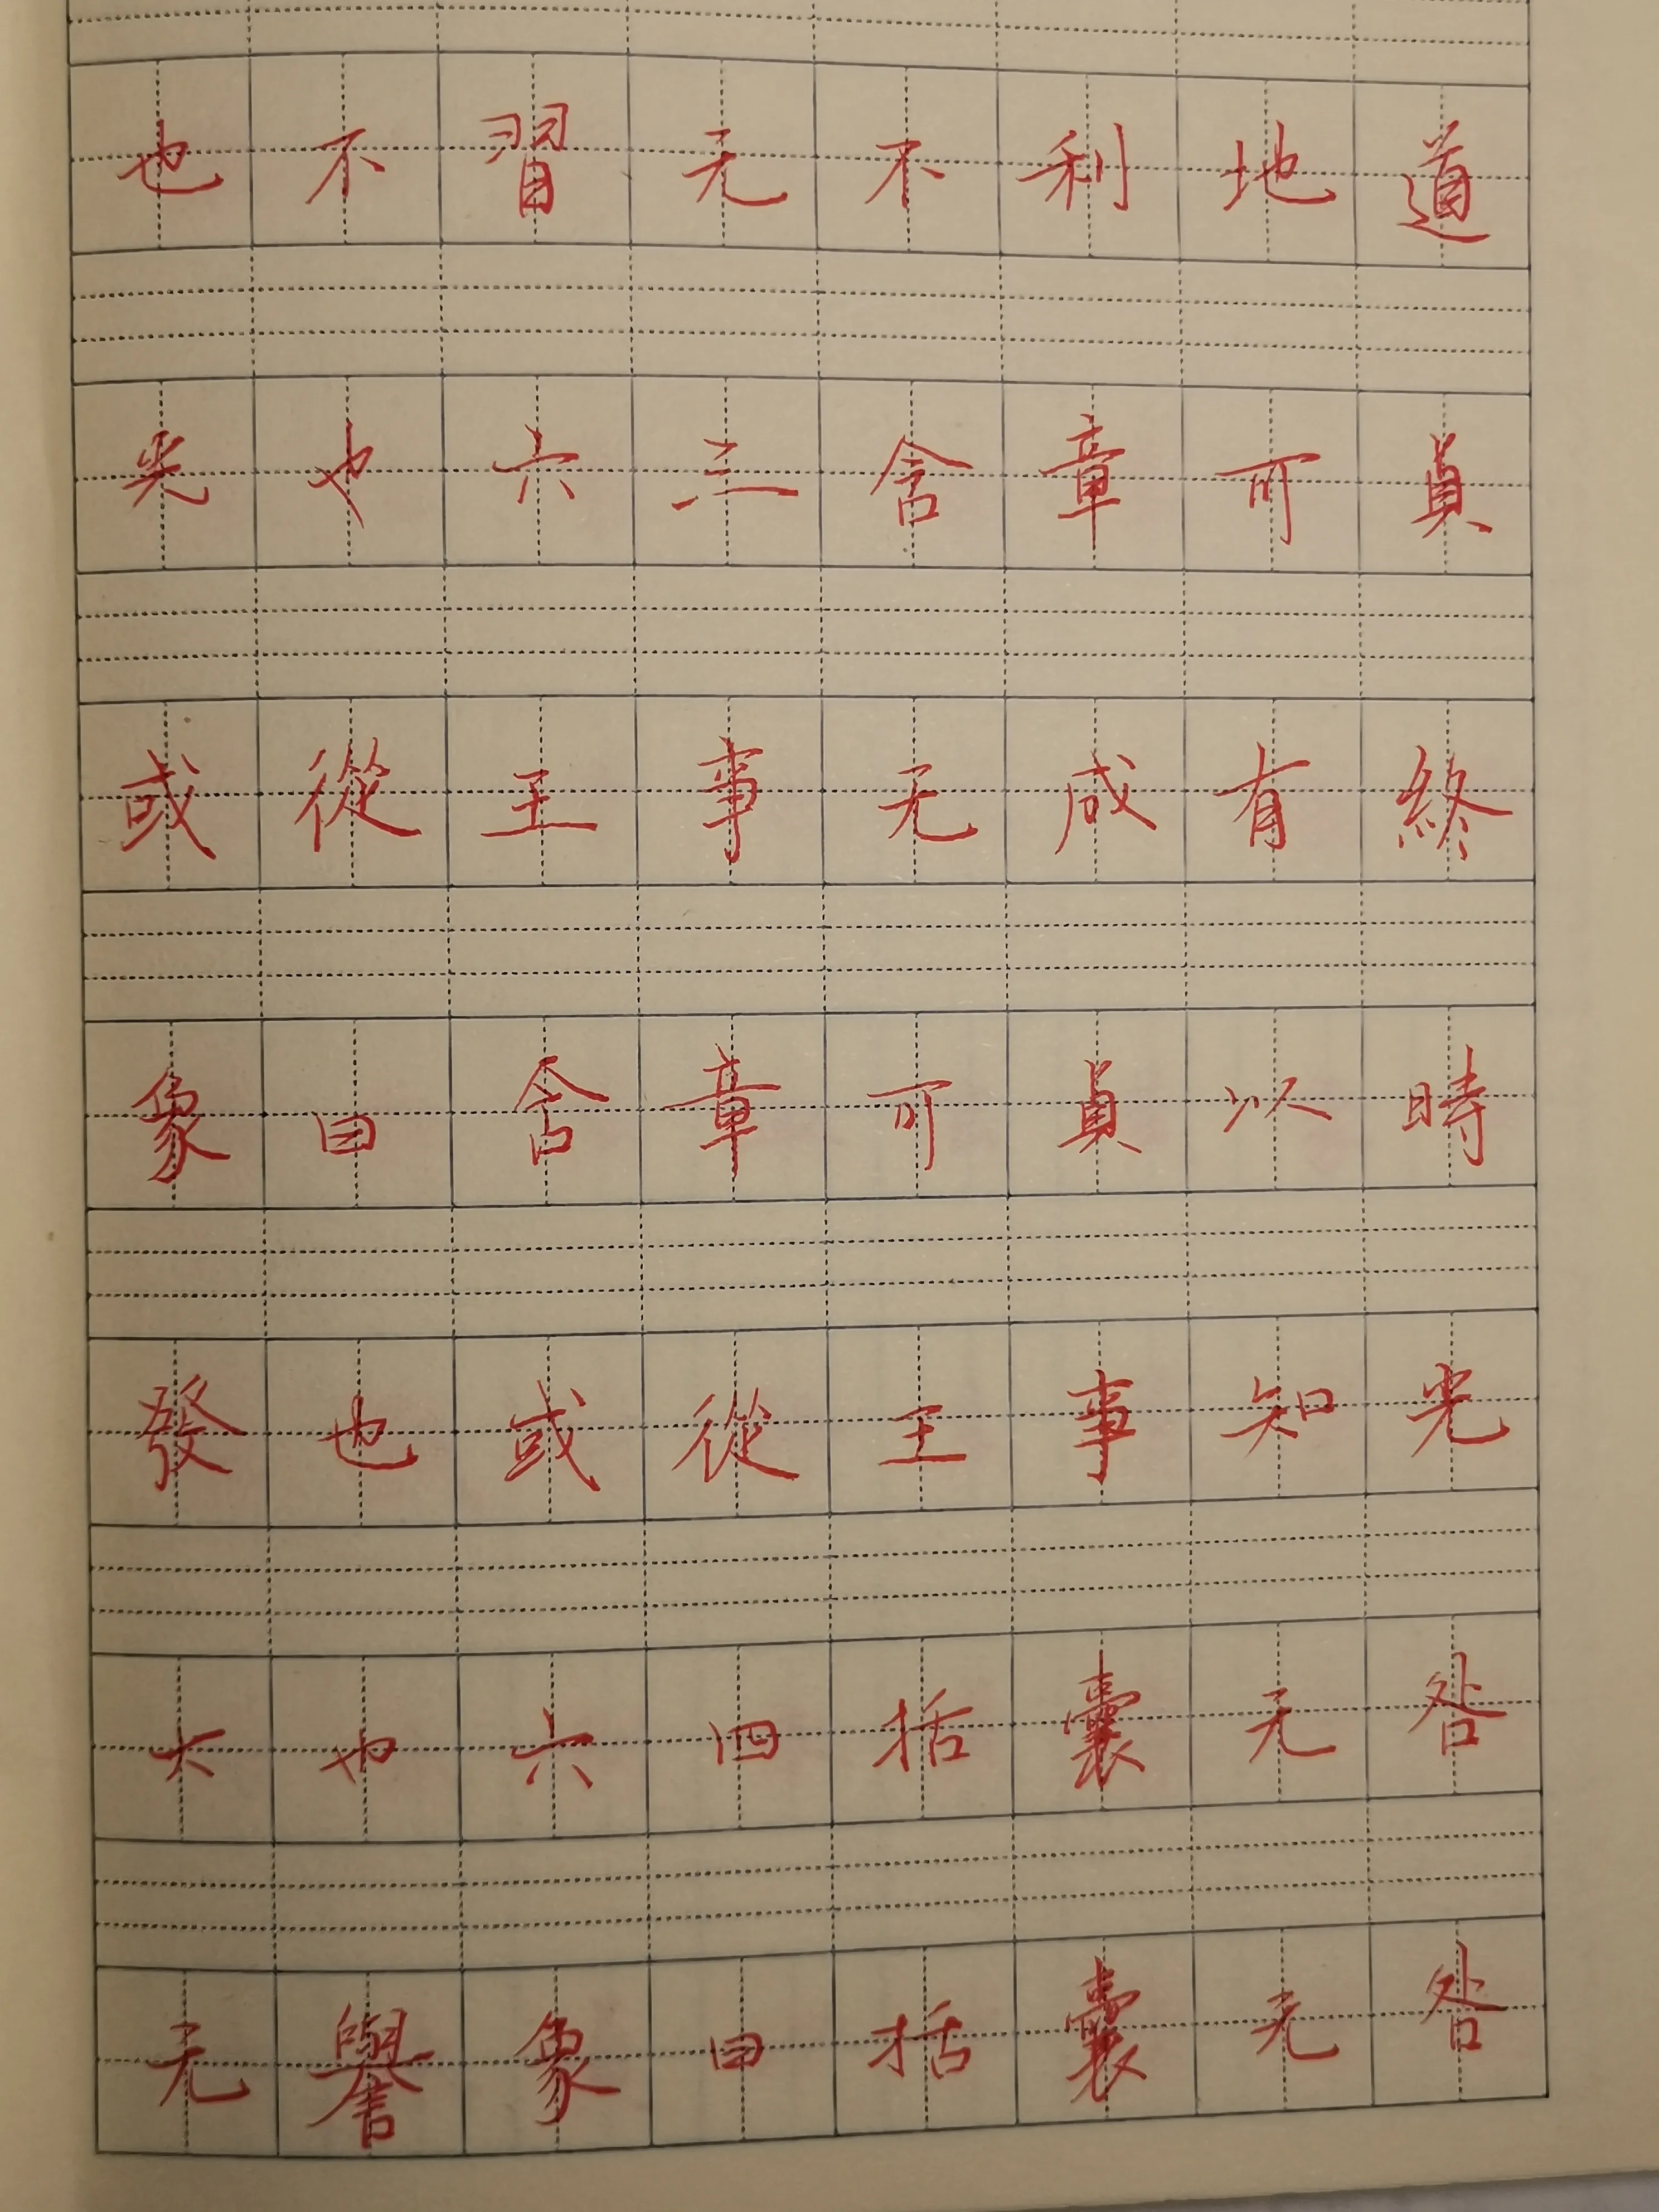 也不習无不利地道
光也六三含章可貞
或從王事无成有終
象曰含章可貞以時
發也或從王事知光
大也六四括囊无咎
无譽象曰括囊无咎